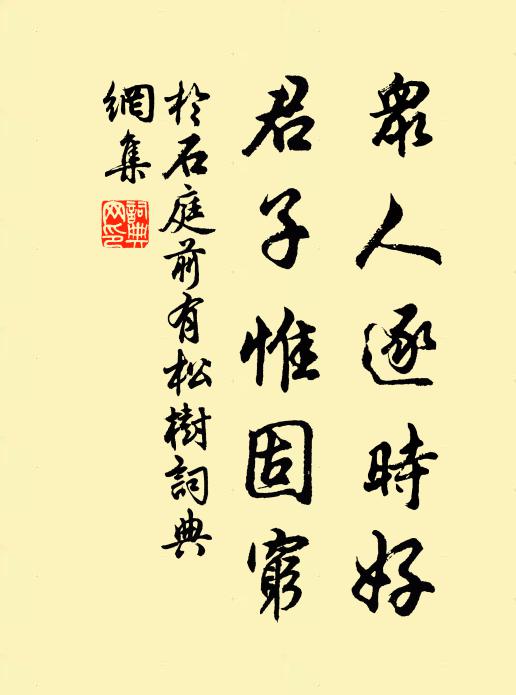 眾人逐時好
君子惟固窮
於石庭前有松樹詞典
網集
詞典網印